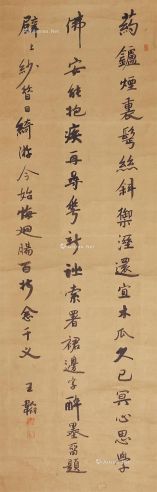 药鑪煙裏鬢絲斜禦溼還宜木瓜久已冥心思學
佛安能抱疾再尋花新詩索署裙邊字醉墨留題
壁上紗昔日綺游今始悔迴腸百折念千叉
王